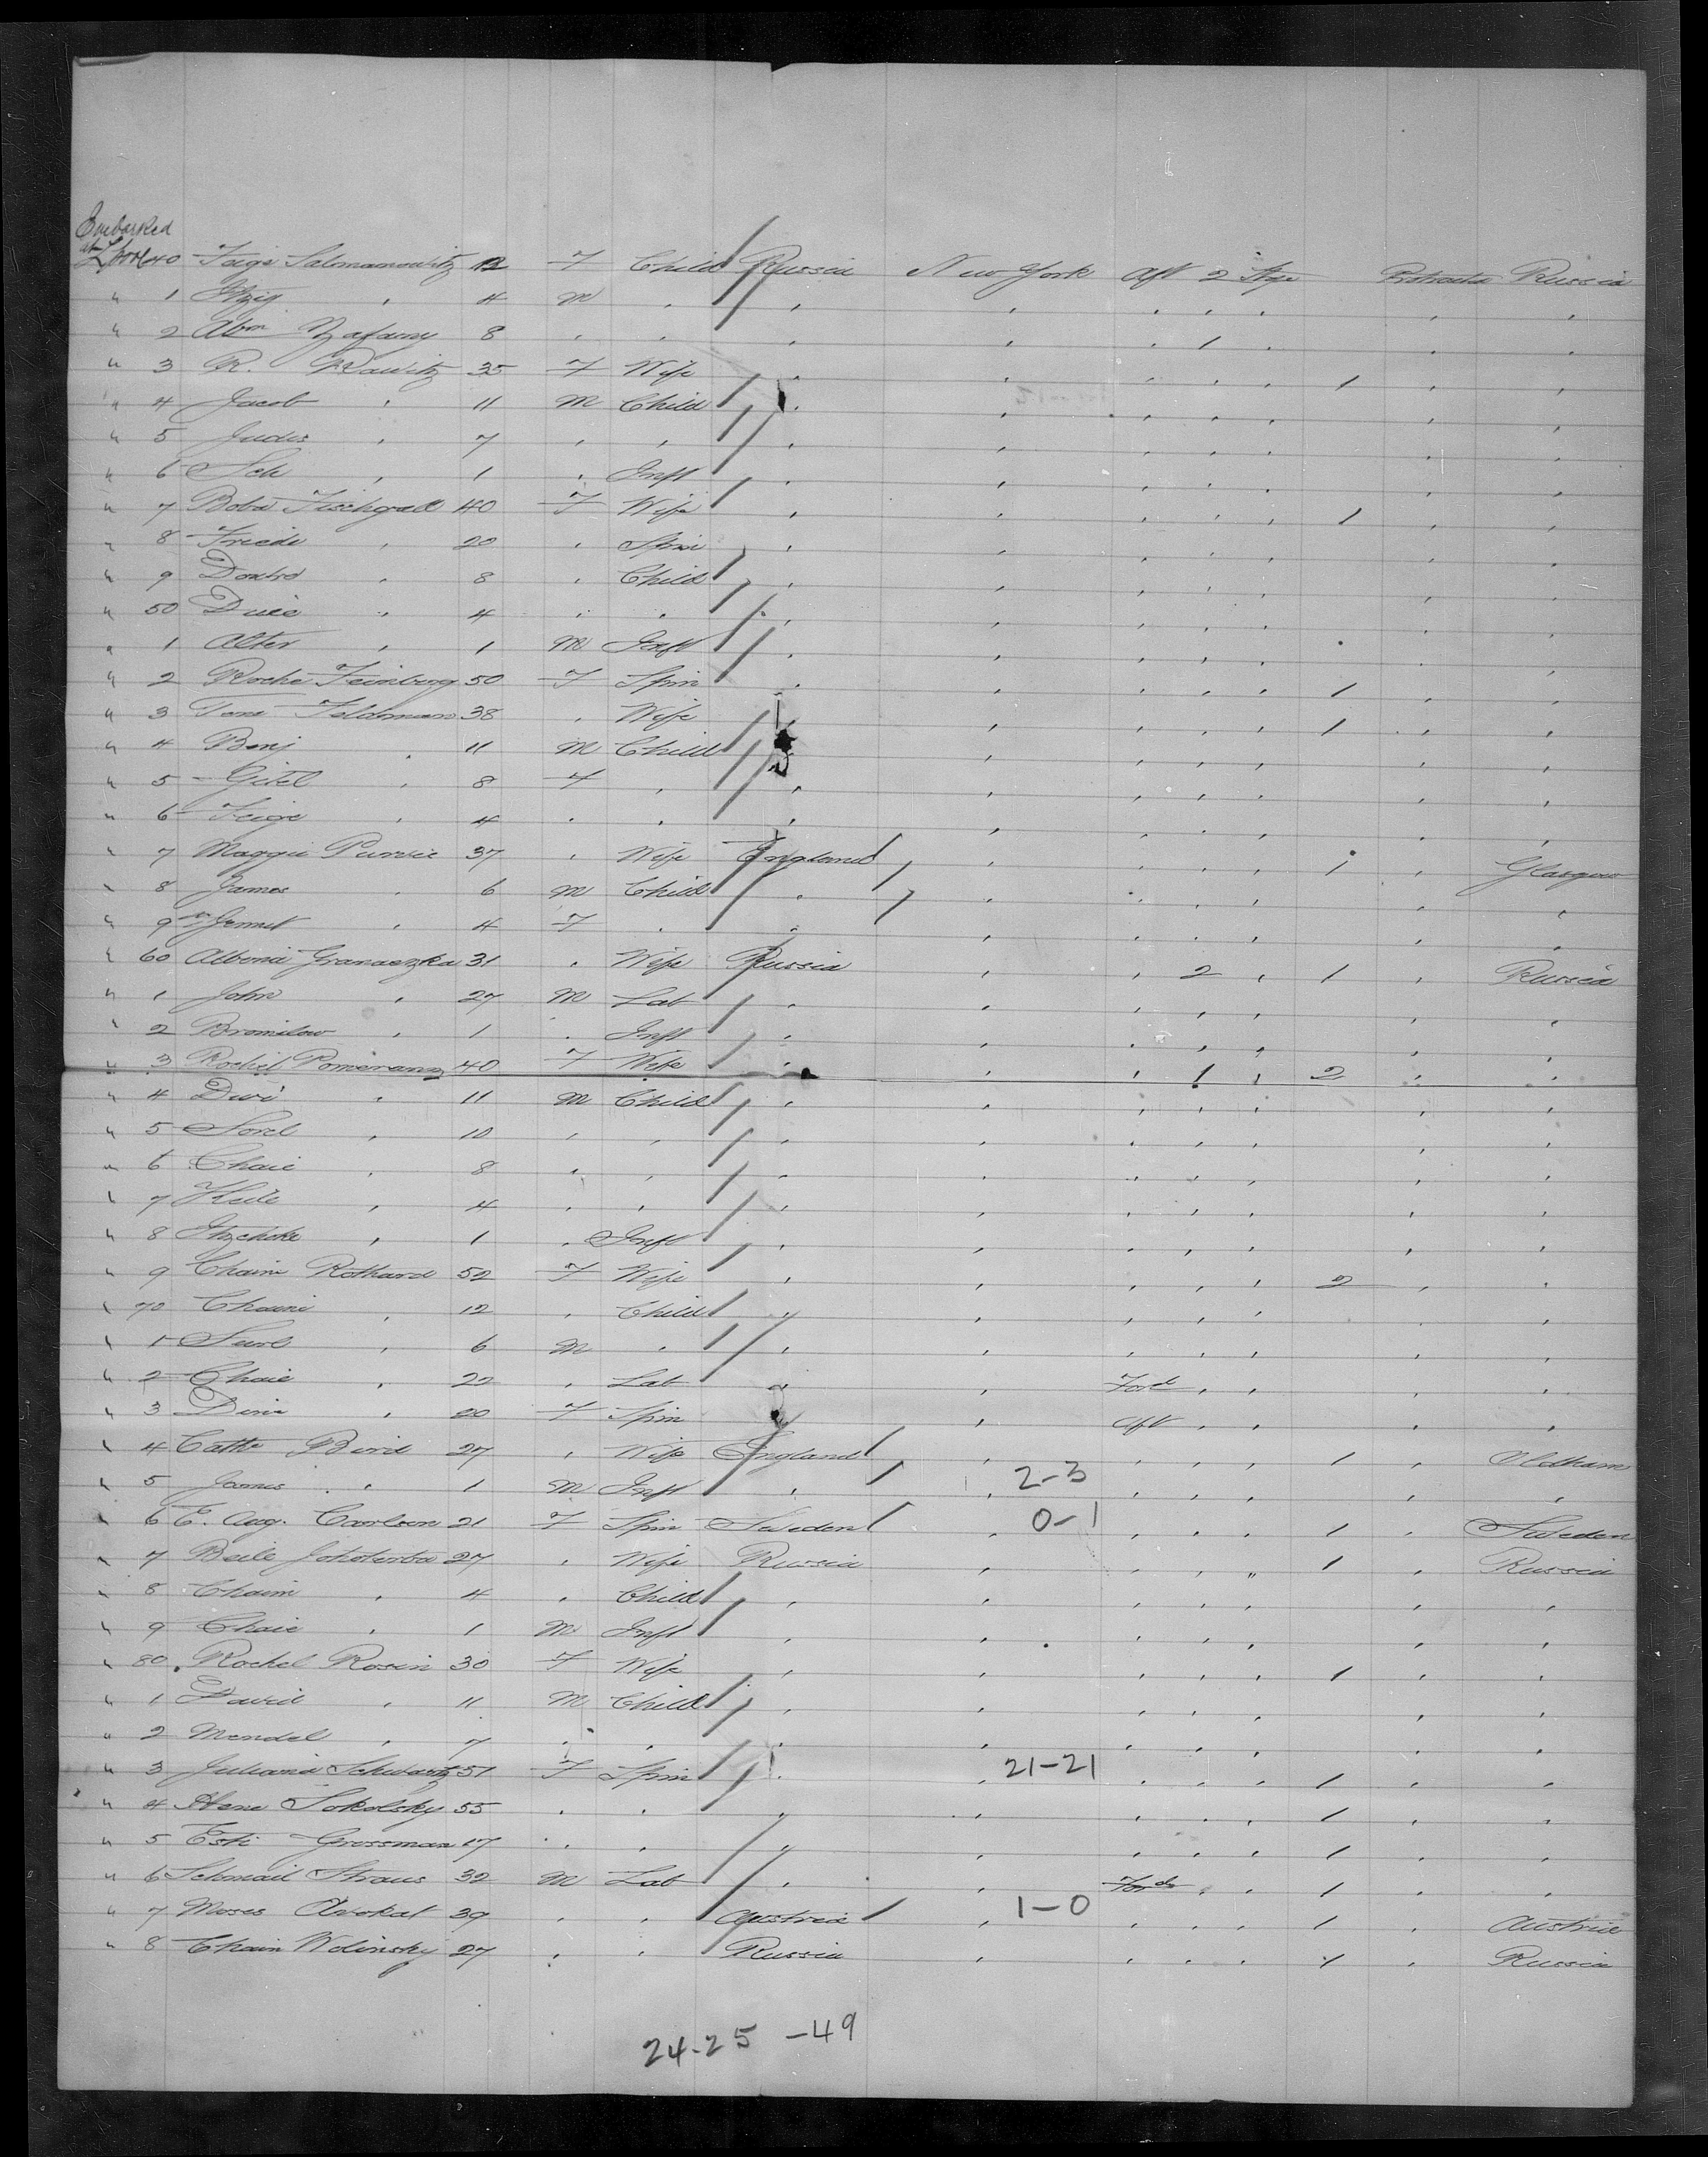 Embarked
at L'pool 40 Feige Salmanowitz 12 F Child Russia New York Aft 2 Stge Protracted Russia
" 1 Itzig " 4 M " " " " " " " "
" 2 Abm 8 " " " " " 1 " " "
" 3 R. Dawitz 35 F Wife " " " " " 1 " "
" 4 Jacob " 11 M Child " " " " " " "
" 5 Judes " 7 " " " " " " " " "
" 6 Sch " 1 " Inft " " " " " " "
" 7 Boba Fischgrall 40 F Wife " " " " " 1 " "
" 8 Friede " 20 " Spin " " " " " " "
" 9 " 8 " Child " " " " " " "
" 50 " 4 " " " " " " " " "
" 1 Alter " 1 M Inft " " " " " " "
" 2 Roche Feinberg 50 F Spin " " " " " 1 " "
" 3 Feldman 38 " Wife " " " " " 1 " "
" 4 Benj " 11 M Child " " " " " " "
" 5 Gitel " 8 F " " " " " " " "
" 6 Feige " 4 " " " " " " " " "
" 7 Maggie Purvie 37 " Wife England " " " " 1 " Glasgow
" 8 James " 6 M Child " " " " " " "
" 9 " 4 F " " " " " " " "
" 60 Albina Granaczka 31 " Wife Russia " " 2 " 1 " Russia
" 1 John " 27 M Lab " " " " " " "
" 2 Bromilow " 1 " Inft " " " " " " "
" 3 Rochel Pomeranz 40 F Wife " " " 1 " 2 " "
" 4 Dwi " 11 M Child " " " " " " "
" 5 Sorel " 10 " " " " " " " " "
" 6 Chaie " 8 " " " " " " " " "
" 7 " 4 " " " " " " " " "
" 8 " 1 " Inft " " " " " " "
" 9 Chaim Rothard 52 F Wife " " " " " 2 " "
" 70 Chaim " 12 " Child " " " " " " "
" 1 Surl " 6 M " " " " " " " "
" 2 Chaie " 22 " Lab " " Ford " " " "
" 3 Dine " 20 F Spin " " Aft " " " "
" 4 Cathe Bird 27 " Wife England " " " " 1 " Oldham
" 5 James " 1 M Inft " " 2-3 " " " " "
" 6 E. Aug. Carlson 21 F Spin Sweden " 0-1 " " " 1 " Sweden
" 7 Beile 27 " Wife Russia " " " " 1 " Russia
" 8 Chaim " 4 " Child " " " " " " "
" 9 Chaie " 1 M Inft " " " " " " "
" 80 Rochel Rosin 30 F Wife " " " " " 1 " "
" 1 David " 11 M Child " " " " " " "
" 2 Mendel " 7 " " " " " " " " "
" 3 Juliana Schwartz 51 F Spin " " 21-21 " " " 1 " "
" 4 Sokolsky 55 " " " " " " " 1 " "
" 5 Esti Grossman 17 " " " " " " " 1 " "
" 6 Schmail Straus 32 M Lab " " Ford " " 1 " "
" 7 Moses Avokat 39 " " Austria " 1-0 " " " 1 " Austria
" 8 Chaim Wolinsky 27 " " Russia " " " " 1 " Russia
24-25 -49